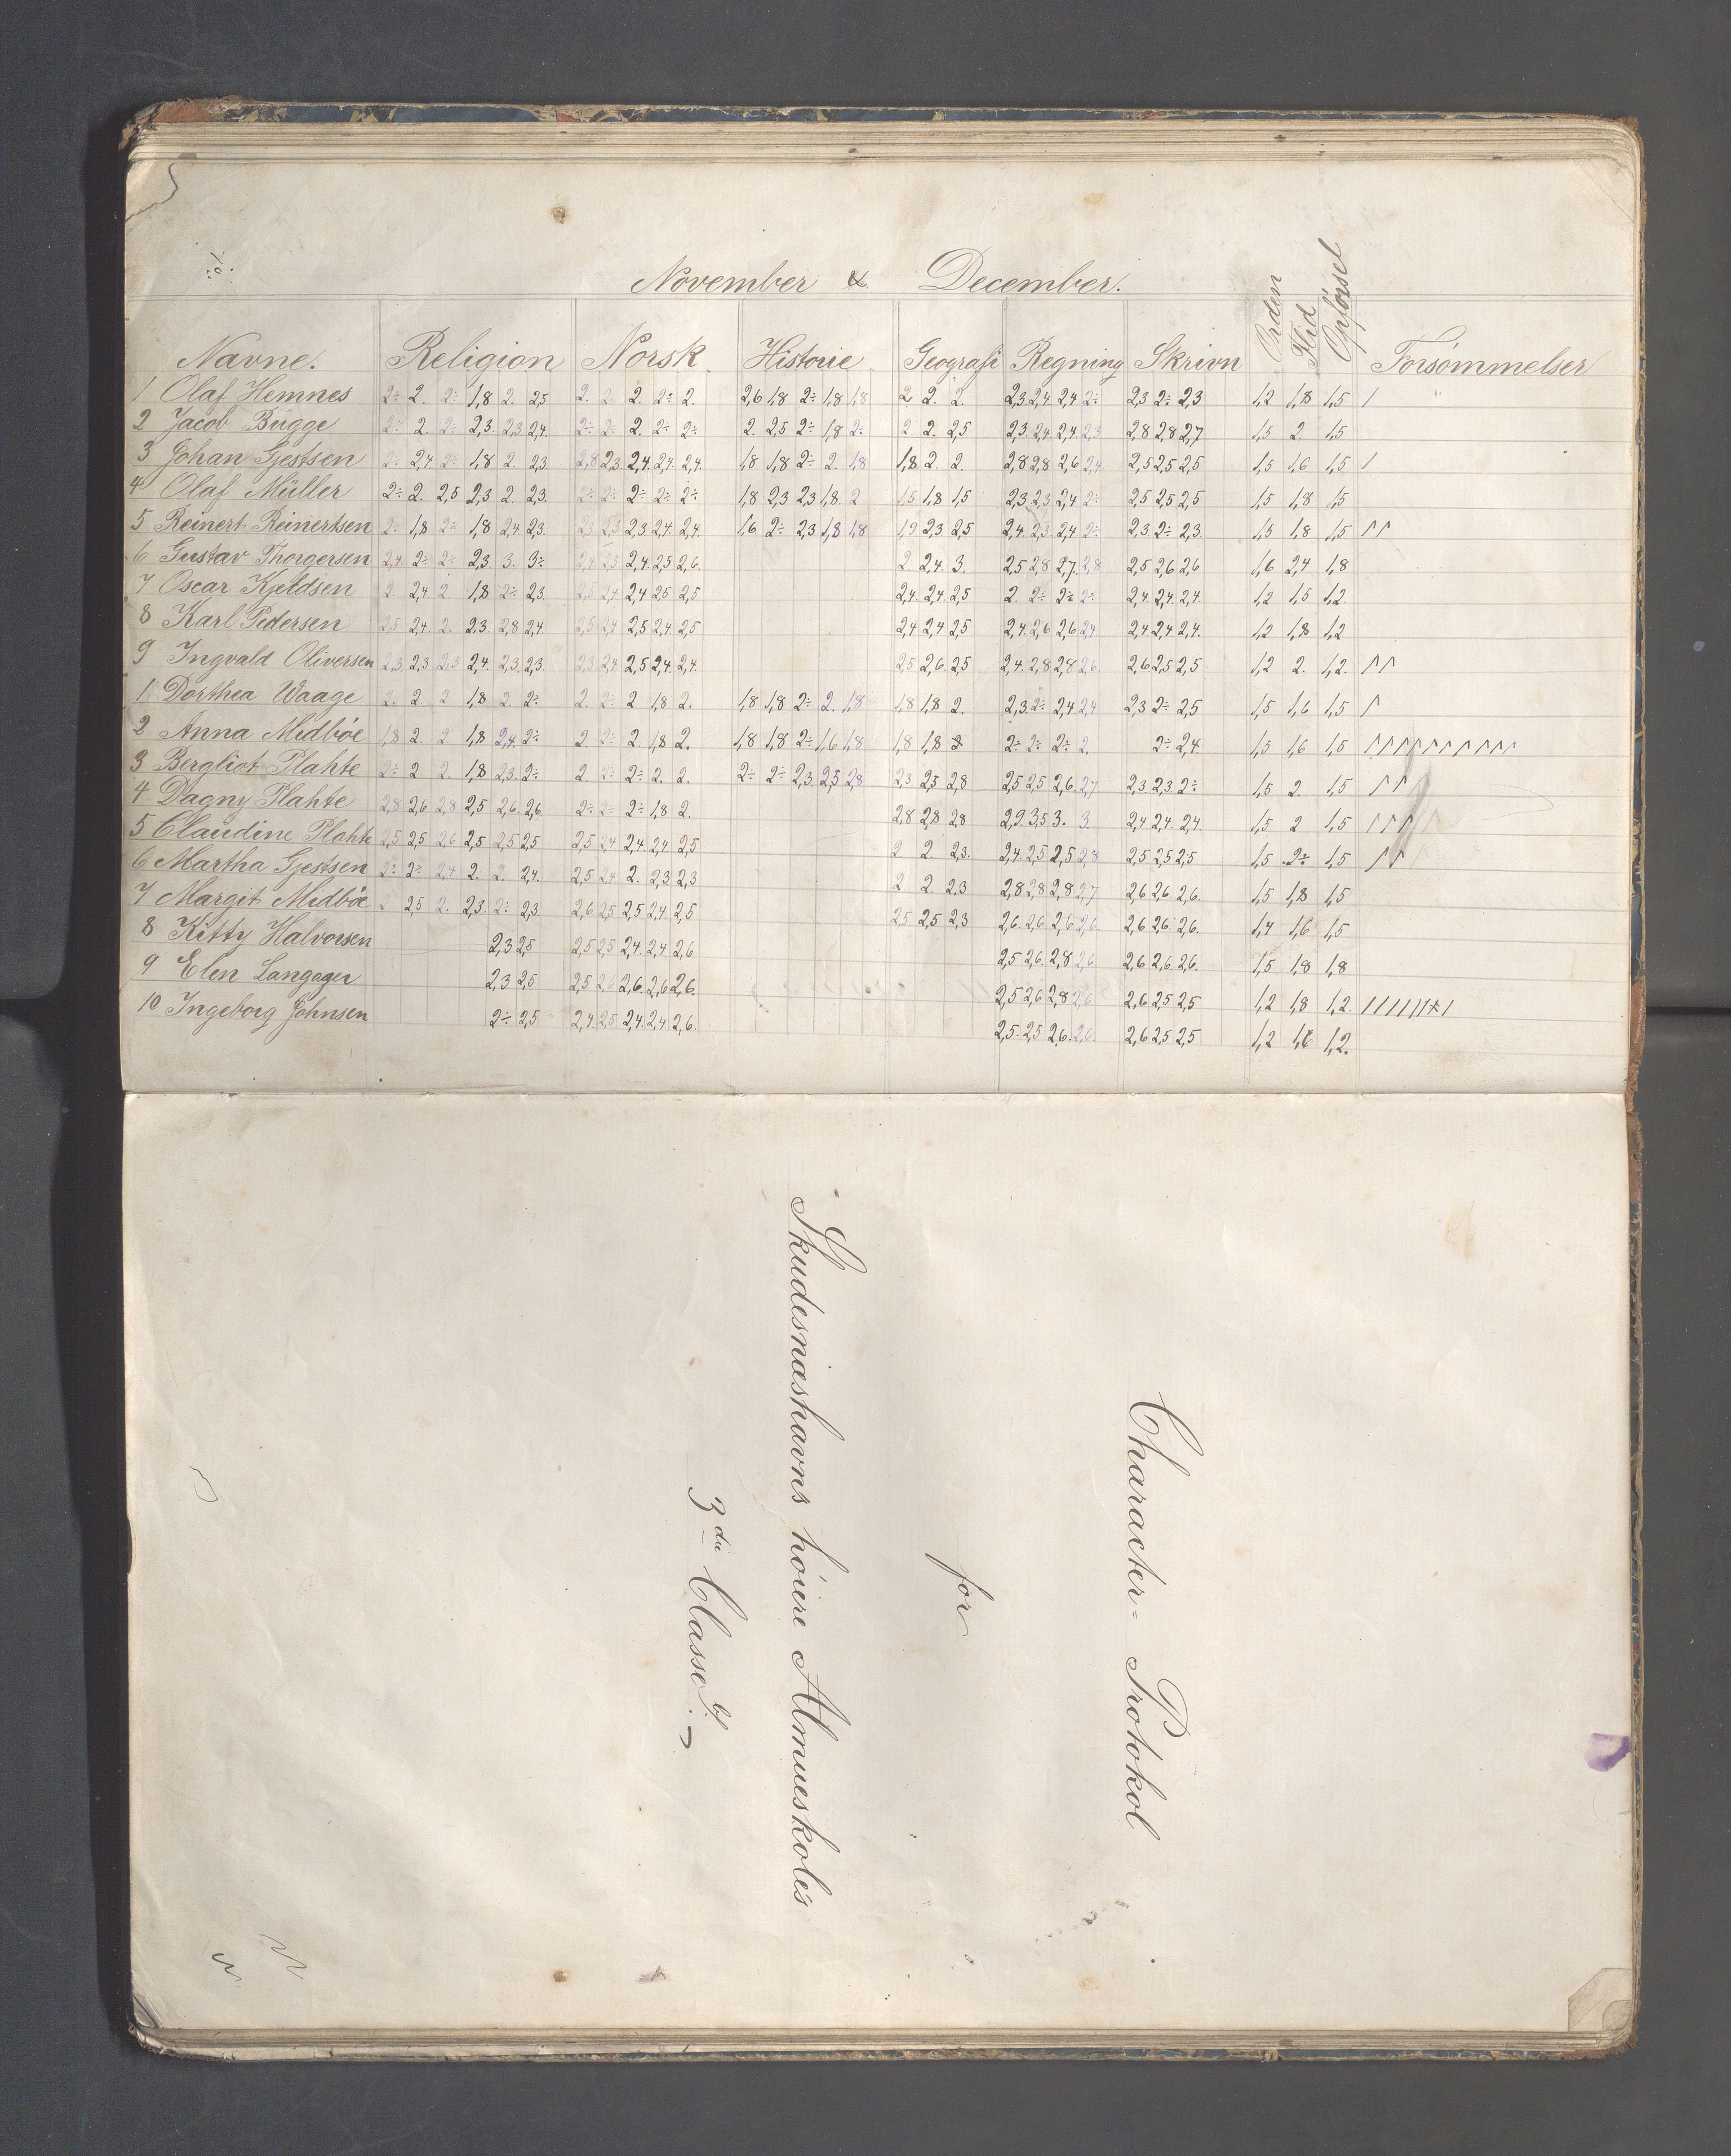 November & December.
Navne. Religion Norsk Historie Geografi Regning Skrivn Orden Flid Opførsel Forsømmelser
1 Olaf Hemnes 2÷ 2. 2÷ 1,8 2. 2,5 2. 2 2. 2÷ 2. 2,6 1,8 2÷ 1,8 1,8 2 2. 2. 2,3 2,4 2,4 2÷ 2,3 2÷ 2,3 1,2 1,8 1,5 /
2 Jacob Bugge 2÷ 2. 2÷ 2,3. 2,3 2,4. 2÷ 2÷ 2. 2÷ 2÷ 2. 2,5 2÷ 1,8 2÷ 2 2. 2,5 2,3. 2,4. 2,4. 2,3 2,8 2,8 2,7 1,5 2. 1,5
3 Johan Gjestsen 2÷ 2,4. 2÷ 1,8 2. 2,3 2,8 2,3 2,4. 2,4. 2,4. 1,8 1,8 2÷ 2. 1,8 1,8. 2. 2. 2,8 2,8 2,6 2,4 2,5 2,5 2,5 1,5 1,6 1,5 /
4 Olaf Müller 2÷ 2. 2,5 2,3 2. 2,3. 2÷ 2÷ 2÷ 2÷ 2÷ 1,8 2,3 2,3 1,8. 2 1,5 1,8 1,5 2,3 2,3 2,4 2÷ 2,5 2,5 2,5 1,5 1,8 1,5
5 Reinert Reinertsen 2÷ 1,8 2÷ 1,8 2,4. 2,3. 2,3 2,3 2,3. 2,4. 2,4. 1,6 2÷ 2,3 1,8 1,8 1,9 2,3 2,5 2,4. 2,3. 2,4 2÷ 2,3. 2÷ 2,3. 1,5 1,8 1,5 / /
6 Gustav Thorgersen 2,4 2÷ 2÷ 2,3. 3. 3÷ 2,4 2,3 2,4. 2,5 2,6. 2 2,4. 3. 2,5 2,8 2,7. 2,8 2,5 2,6 2,6 1,6 2,4 1,8
7 Oscar Kjeldsen 2 2,4 2. 1,8 2÷ 2,3. 2,5 2,4 2,4 2,5 2,5 2,4. 2,4. 2,5 2. 2÷ 2÷ 2÷ 2,4. 2,4. 2,4. 1,2 1,5 1,2.
8 Karl Pedersen 2,5 2,4. 2. 2,3. 2,8 2,4. 2,5 2,4 2,5 2,4. 2,5 2,4 2,4 2,5 2,4. 2,6 2,6 2,4 2,4 2,4 2,4. 1,2 1,8 1,2
9 Ingvald Oliversen 2,3 2,3 2,3 2,4. 2,3. 2,3. 2,3 2,4 2,5 2,4. 2,4. 2,5 2,6. 2,5 2,4. 2,8 2,8 2,6 2,6 2,5 2,5 1,2 2. 1,2. / /
1 Dorthea Waage 2. 2. 2 1,8 2. 2÷ 2. 2÷ 2 1,8 2. 1,8 1,8 2÷ 2. 1,8 1,8 1,8 2. 2,3. 2÷ 2,4 2,4 2,3 2÷ 2,5 1,5 1,6 1,5 /
2 Anna Midbøe 1,8 2. 2. 1,8 2,4. 2÷ 2. 2÷ 2. 1,8 2. 1,8 1,8 2÷ 1,6 1,8 1,8 1,8 2 2÷ 2÷ 2÷ 2. 2÷ 2,4. 1,5 1,6 1,5 / / / / / / / / / /
3 Bergliot Plahte 2÷ 2 2. 1,8 2,3. 2÷ 2. 2÷ 2÷ 2. 2. 2÷ 2÷ 2,3 2,5 2,8 2,3 2,5 2,8 2,5 2,5 2,6. 2,7 2,3 2,3. 2÷ 1,5 2. 1,5 / /
4 Dagny Plahte 2,8 2,6 2,8 2,5 2,6. 2,6. 2÷ 2÷ 2÷ 1,8 2. 2,8 2,8 2,8 2,9. 3,5 3. 3. 2,4 2,4. 2,4 1,5 2 1,5 / / /
5 Claudine Plahte 2,5 2,5 2,6 2,5 2,5 2,5 2,5 2,4 2,4. 2,4 2,5 2. 2. 2,3. 2,4. 2,5 2,5 2,8 2,5 2,5 2,5 1,5 2÷ 1,5 / /
6 Martha Gjestsen 2÷ 2÷ 2,4 2. 2. 2,4. 2,5 2,4 2. 2,3 2,3 2 2 2,3 2,8 2,8 2,8 2,7 2,6 2,6 2,6. 1,5 1,8 1,5
7 Margit Midbøe 2 2,5 2. 2,3. 2÷ 2,3. 2,6. 2,5 2,5 2,4. 2,5 2,5 2,5 2,3 2,6. 2,6 2,6 2,6 2,6 2,6. 2,6. 1,4 1,6 1,5
8 Kitty Halvorsen 2,3 2,5 2,5 2,5 2,4. 2,4 2,6 2,5 2,6. 2,8 2,6 2,6 2,6. 2,6. 1,5 1,8 1,8
9 Elen Langager 2,3 2,5 2,5 2,6 2,6. 2,6 2,6. 2,5 2,6 2,8 2,6 2,6 2,5 2,5 1,2 1,8 1,2.
10 Ingeborg Johnsen 2÷ 2,5 2,4. 2,5 2,4. 2,4. 2,6. 2,5. 2,5 2,6. 2,6 2,6 2,5 2,5 1,2 1,6 1,2.
Character=Protokol
for
Skudesnæshavns høiere Almueskoles
3die Classe